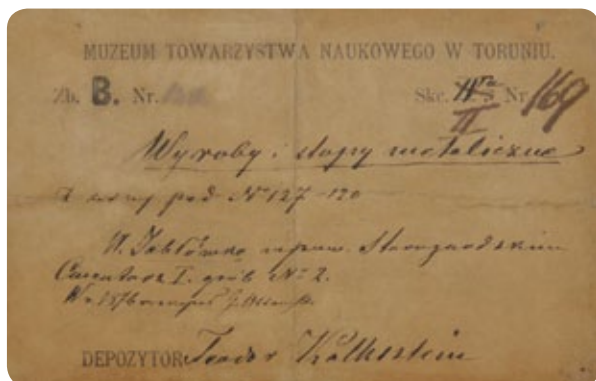 MUZEUM TOWARZYSTWA NAUKOWEGO W TORUNIU.
Zb. B. Nr. Skc. II Nr 169
Wyroby i stopy metaliczne
pod Nr 127-120
W Jabłówko w pow. Starogardzkim
Cmentarz I. grób Nr 2.
DEPOZYTOR Teodor Kalkstein